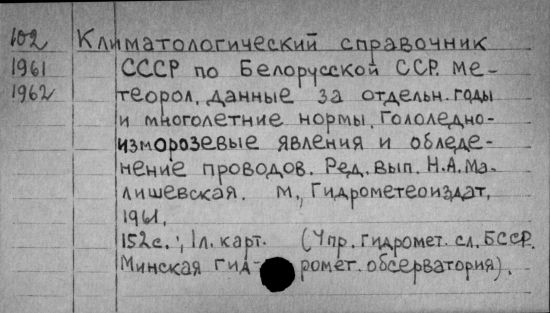 102 Климатологический справочник
1961 СССР по Белорусской ССР. Ме-
1962 теорол. данные за отдельн. годы
и многолетние нормы. Гололедно-
изморозевые явления и обледе-
нение проводов. Ред. вып. Н.А. Ма-
лишевская. М., Гидрометеоиздат,
1961.
152с., 1л. карт. (Упр. гидромет. сл. БССР.
Минская гид-ромет. обсерватория).